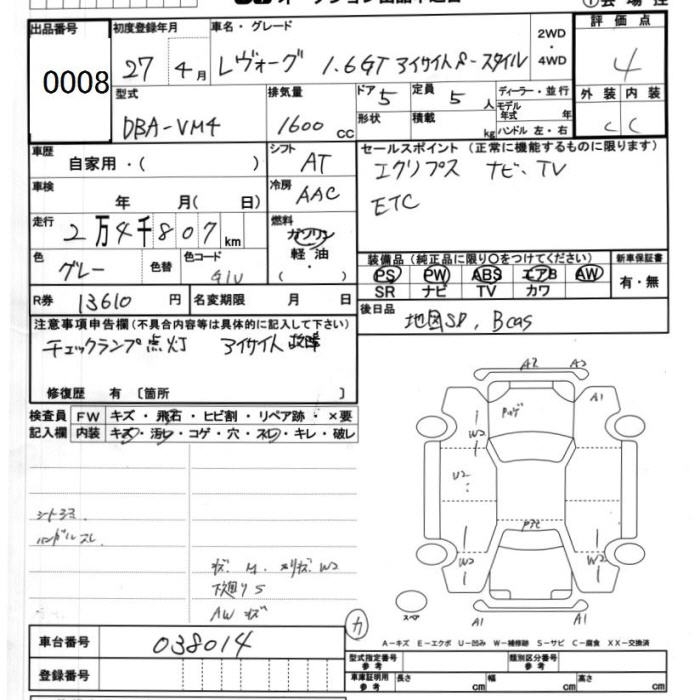 出品番号 初度登録年月 車名・グレード 2WD・4WD 評価点
0008 27 4月 レヴォーグ 1.6GT アイサイト P-スタイル 4
型式 排気量 ドア 5 定員 5人 ディーラー・並行 外装 内装
DBA-VM4 1600cc 形状 積載 kg モデル年式 年 C C
ハンドル 左・右
車歴 自家用・( ) シフト AT セールスポイント(正常に機能するものに限ります)
エクリプス ナビ、TV
車検 年 月( 日) 冷房 AAC ETC
走行 2万4千807km 燃料 ガソリン
軽油・( )
色 グレー 色替 色コード G1U
装備品(純正品に限り○をつけてください) 新車保証書
PS PW ABS エアB AW 有・無
SR ナビ TV カワ
R券 13610円 名変期限 月 日 後日品 地図SD、Bcas
注意事項申告欄(不具合内容等は具体的に記入して下さい)
チェックランプ点灯 アイサイト故障
修復歴 有〔箇所 〕
検査員 FW キズ・飛石・ヒビ割・リペア跡・×要
記入欄 内装 キズ・汚レ・コゲ・穴・スレ・キレ・破レ
A2 A2
A1
W2
U2
W2 W2
A1 A1
シートヨゴレ
ハンドルスレ
下廻りS
AWキズ
スペア
カ
車台番号 038014
A-キズ E-エクボ U-凹み W-補修跡 S-サビ C-腐食 XX-交換済
登録番号
型式指定番号 参考 類別区分番号 参考
車庫証明用 参考 長さ cm 幅 cm 高さ cm